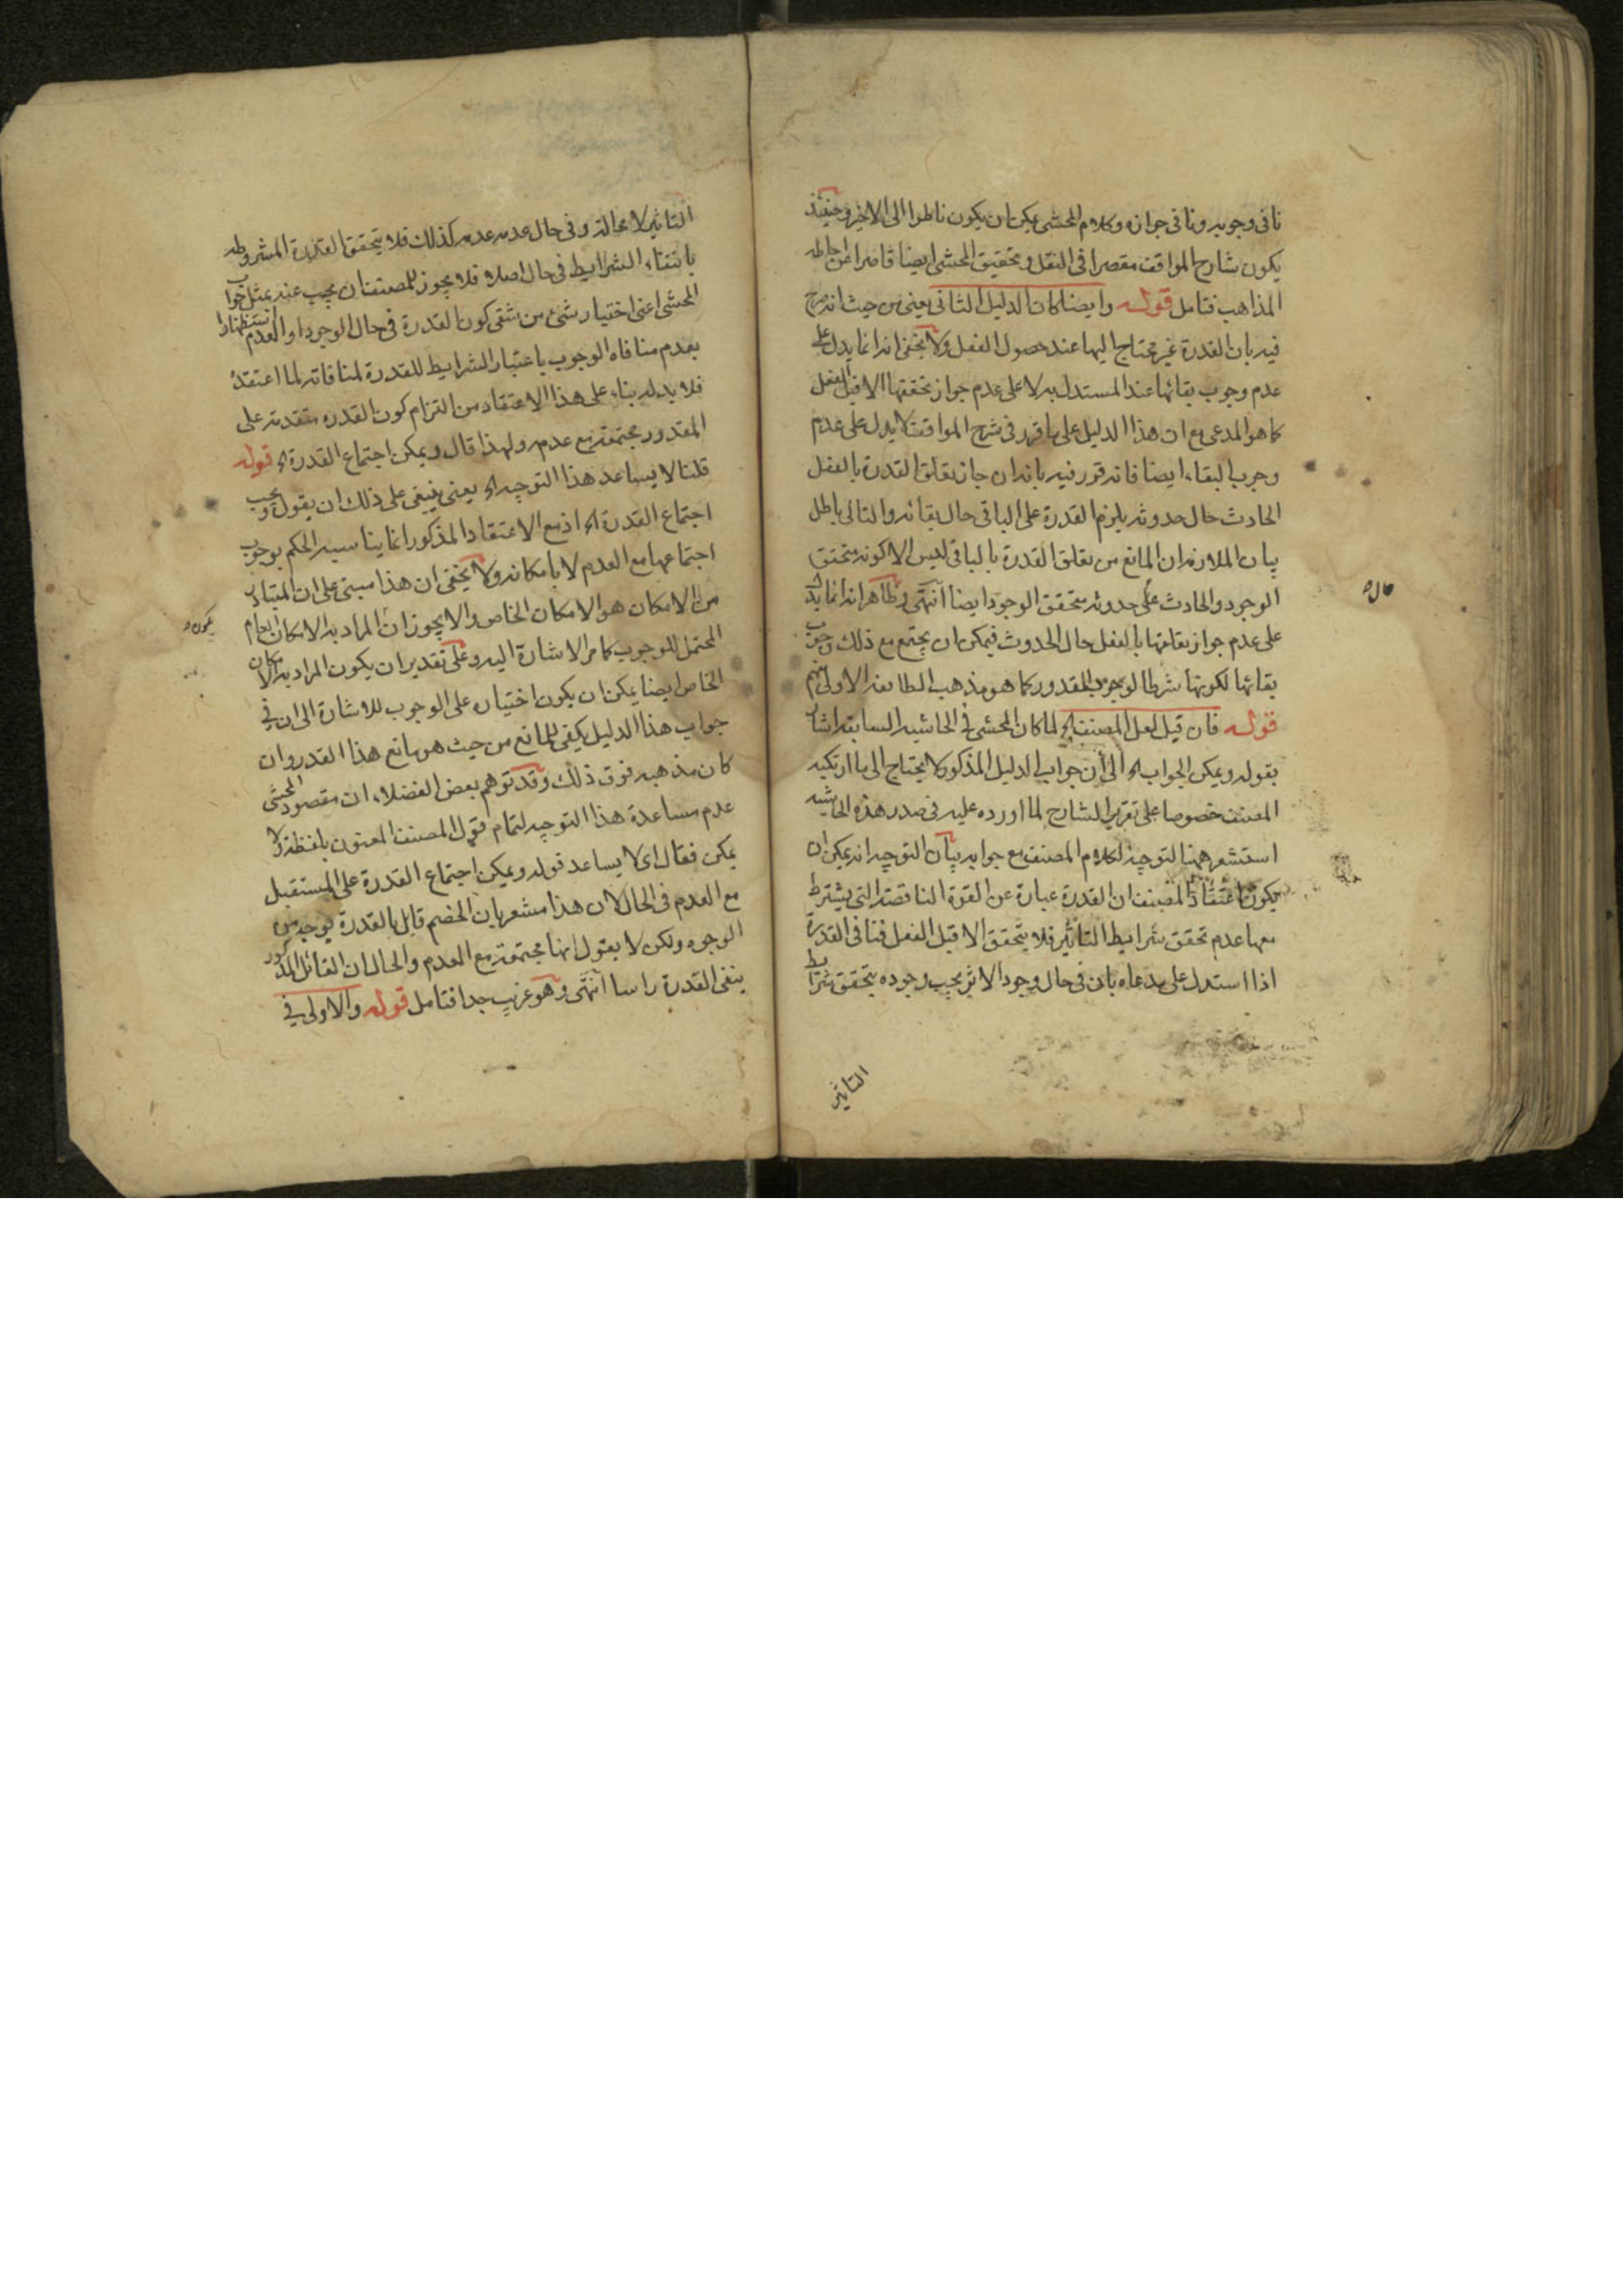 نافى وجوبه ونافى جوازه وكلام المحشى يمكن ان يكون ناظرا الى الاخير وحينئذ
يكون شارح المواقف مقصرا فى النقل وتحقيق المحشى ايضا قاصرا عن احاطه
المذاهب فتامل قوله وايضا كان الدليل الثانى يعنى من حيث انه صرح
فيه بان القدرة غير محتاج اليها عند حصول الفعل ولا يخفى انه انما يدل على
عدم وجوب بقائها عند المستدل به لا على عدم جواز تحققها الا قبل الفعل
كما هو المدعى مع ان هذا الدليل على ما قرر فى شرح المواقف لا يدل على عدم
وجوب البقاء ايضا فانه قرر فيه بانه ان جاز تعلق القدرة بالفعل
الحادث حال حدوثه يلزم القدرة على الباقى حال بقائه والتالى باطل
بيان الملازمة ان المانع من تعلق القدرة بالباقى ليس الا كونه متحقق
الوجود والحادث على حدوثه متحقق الوجود ايضا انتهى وظاهر انه انما يدل
حال ه
على عدم جواز تعلقها بالفعل حال الحدوث فيمكن ان يجتمع مع ذلك وجوب
بقائها لكونها شرطا لوجود المقدور كما هو مذهب الطايفة الاولى منهم
قوله فان قيل لعل المصنف اﻟﺦ لما كان المحشى فى الحاشيه السابقه اشار
بقوله ويمكن الجواب اﻟﺦ الى أن جواب الدليل المذكور لا يحتاج الى ما ارتكبه
المصنف خصوصا على تقرير الشارح لما اورده عليه فى صدر هذه الحاشيه
استشعر ههنا لتوجيه لكلام المصنف مع جوابه بيان التوجيه انه يمكن ان
يكون اعتقاد المصنف ان القدرة عبارة عن القوة الناقصة التى يشترط
معها عدم تحقق شرايط التاثير فلا يتحقق الا قبل الفعل فنافى القدرة
اذا استدل على مدعاه بان فى حال وجود الاثر يجب وجوده بتحقق شرايط
التاثير
التاثير لا محالة وفى حال عدمه عدمه كذلك فلا يتحقق القدرة المشروطه
بانتفاء الشرايط فى حال اصلا فلا يجوز للمصنف ان يجيب عنه بمثل جواب
المحشى اعنى اختيار شئ من شقى كون القدرة فى حال الوجود او العدم استظهارا
بعدم منافاه الوجوب باعتبار الشرايط للقدرة لمنافاته لما اعتقده
فلا بد له بناء على هذا الاعتقاد من التزام كون القدره متقدمة على
المقدور مجتمعة مع عدمه ولهذا قال ويمكن اجتماع القدرة اﻟﺦ قوله
قلنا لا يساعد هذا التوجيه اﻟﺦ يعنى ينبغى على ذلك ان يقول ويجب
اجتماع القدرة اﻟﺦ اذ مع الاعتقاد المذكور انما يناسبه الحكم بوجوب
اجتماعها مع العدم لا بامكانه ولا يخفى ان هذا مبنى على ان المتبادر
من الامكان هو الامكان الخاص والا يجوز ان المراد به الامكان العام
يكون ه
المحتمل للوجوب كما مر الاشارة اليه وعلى تقدير ان يكون المراد به الامكان
الخاص ايضا يمكن ان يكون اختياره على الوجوب للاشارة الى ان فى
جواب هذا الدليل يكفى للمانع من حيث هو مانع هذا القدر وان
كان مذهبه فوق ذلك وقد توهم بعض الفضلاء ان مقصود المحشى
عدم مساعدة هذا التوجيه لتمام قول المصنف المعنون بلفظة ولا
يمكن فقال اى لا يساعد قوله ويمكن اجتماع القدرة على المستقبل
مع العدم فى الحال لان هذا مشعر بان الخصم قايل بالقدرة بوجه من
الوجوه ولكن لا يقول انها مجتمعة مع العدم والحال ان القائل المذكور
ينفى القدرة راسا انتهى وهو غريب جدا فتامل قوله والاولى فى